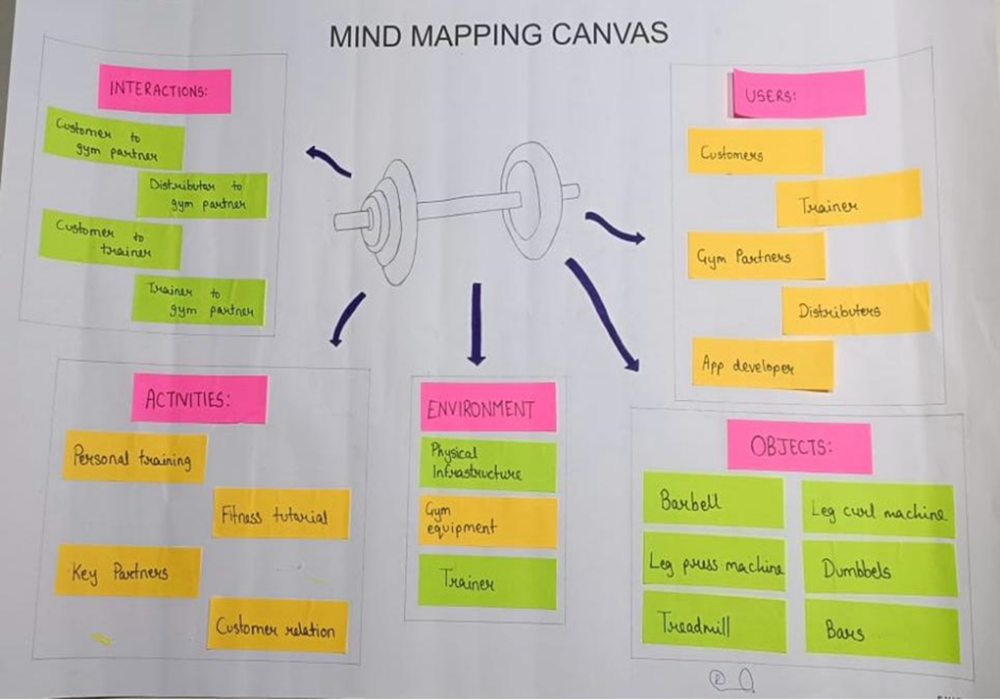 MIND MAPPING CANVAS
INTERACTIONS:
Customer to
gym partner
Distributer to
gym partner
Customer to
trainer
Trainer to
gym partner
USERS:
Customers
Trainer
Gym Partners
Distributers
App developer
ACTIVITIES:
Personal training
Fitness tutarial
Key Partners
Customer relation
ENVIRONMENT
Physical
Infrastructure
Gym
equipment
Trainer
OBJECTS:
Barbell
Leg curl machine
Leg press machine
Dumbbels
Treadmill
Bars